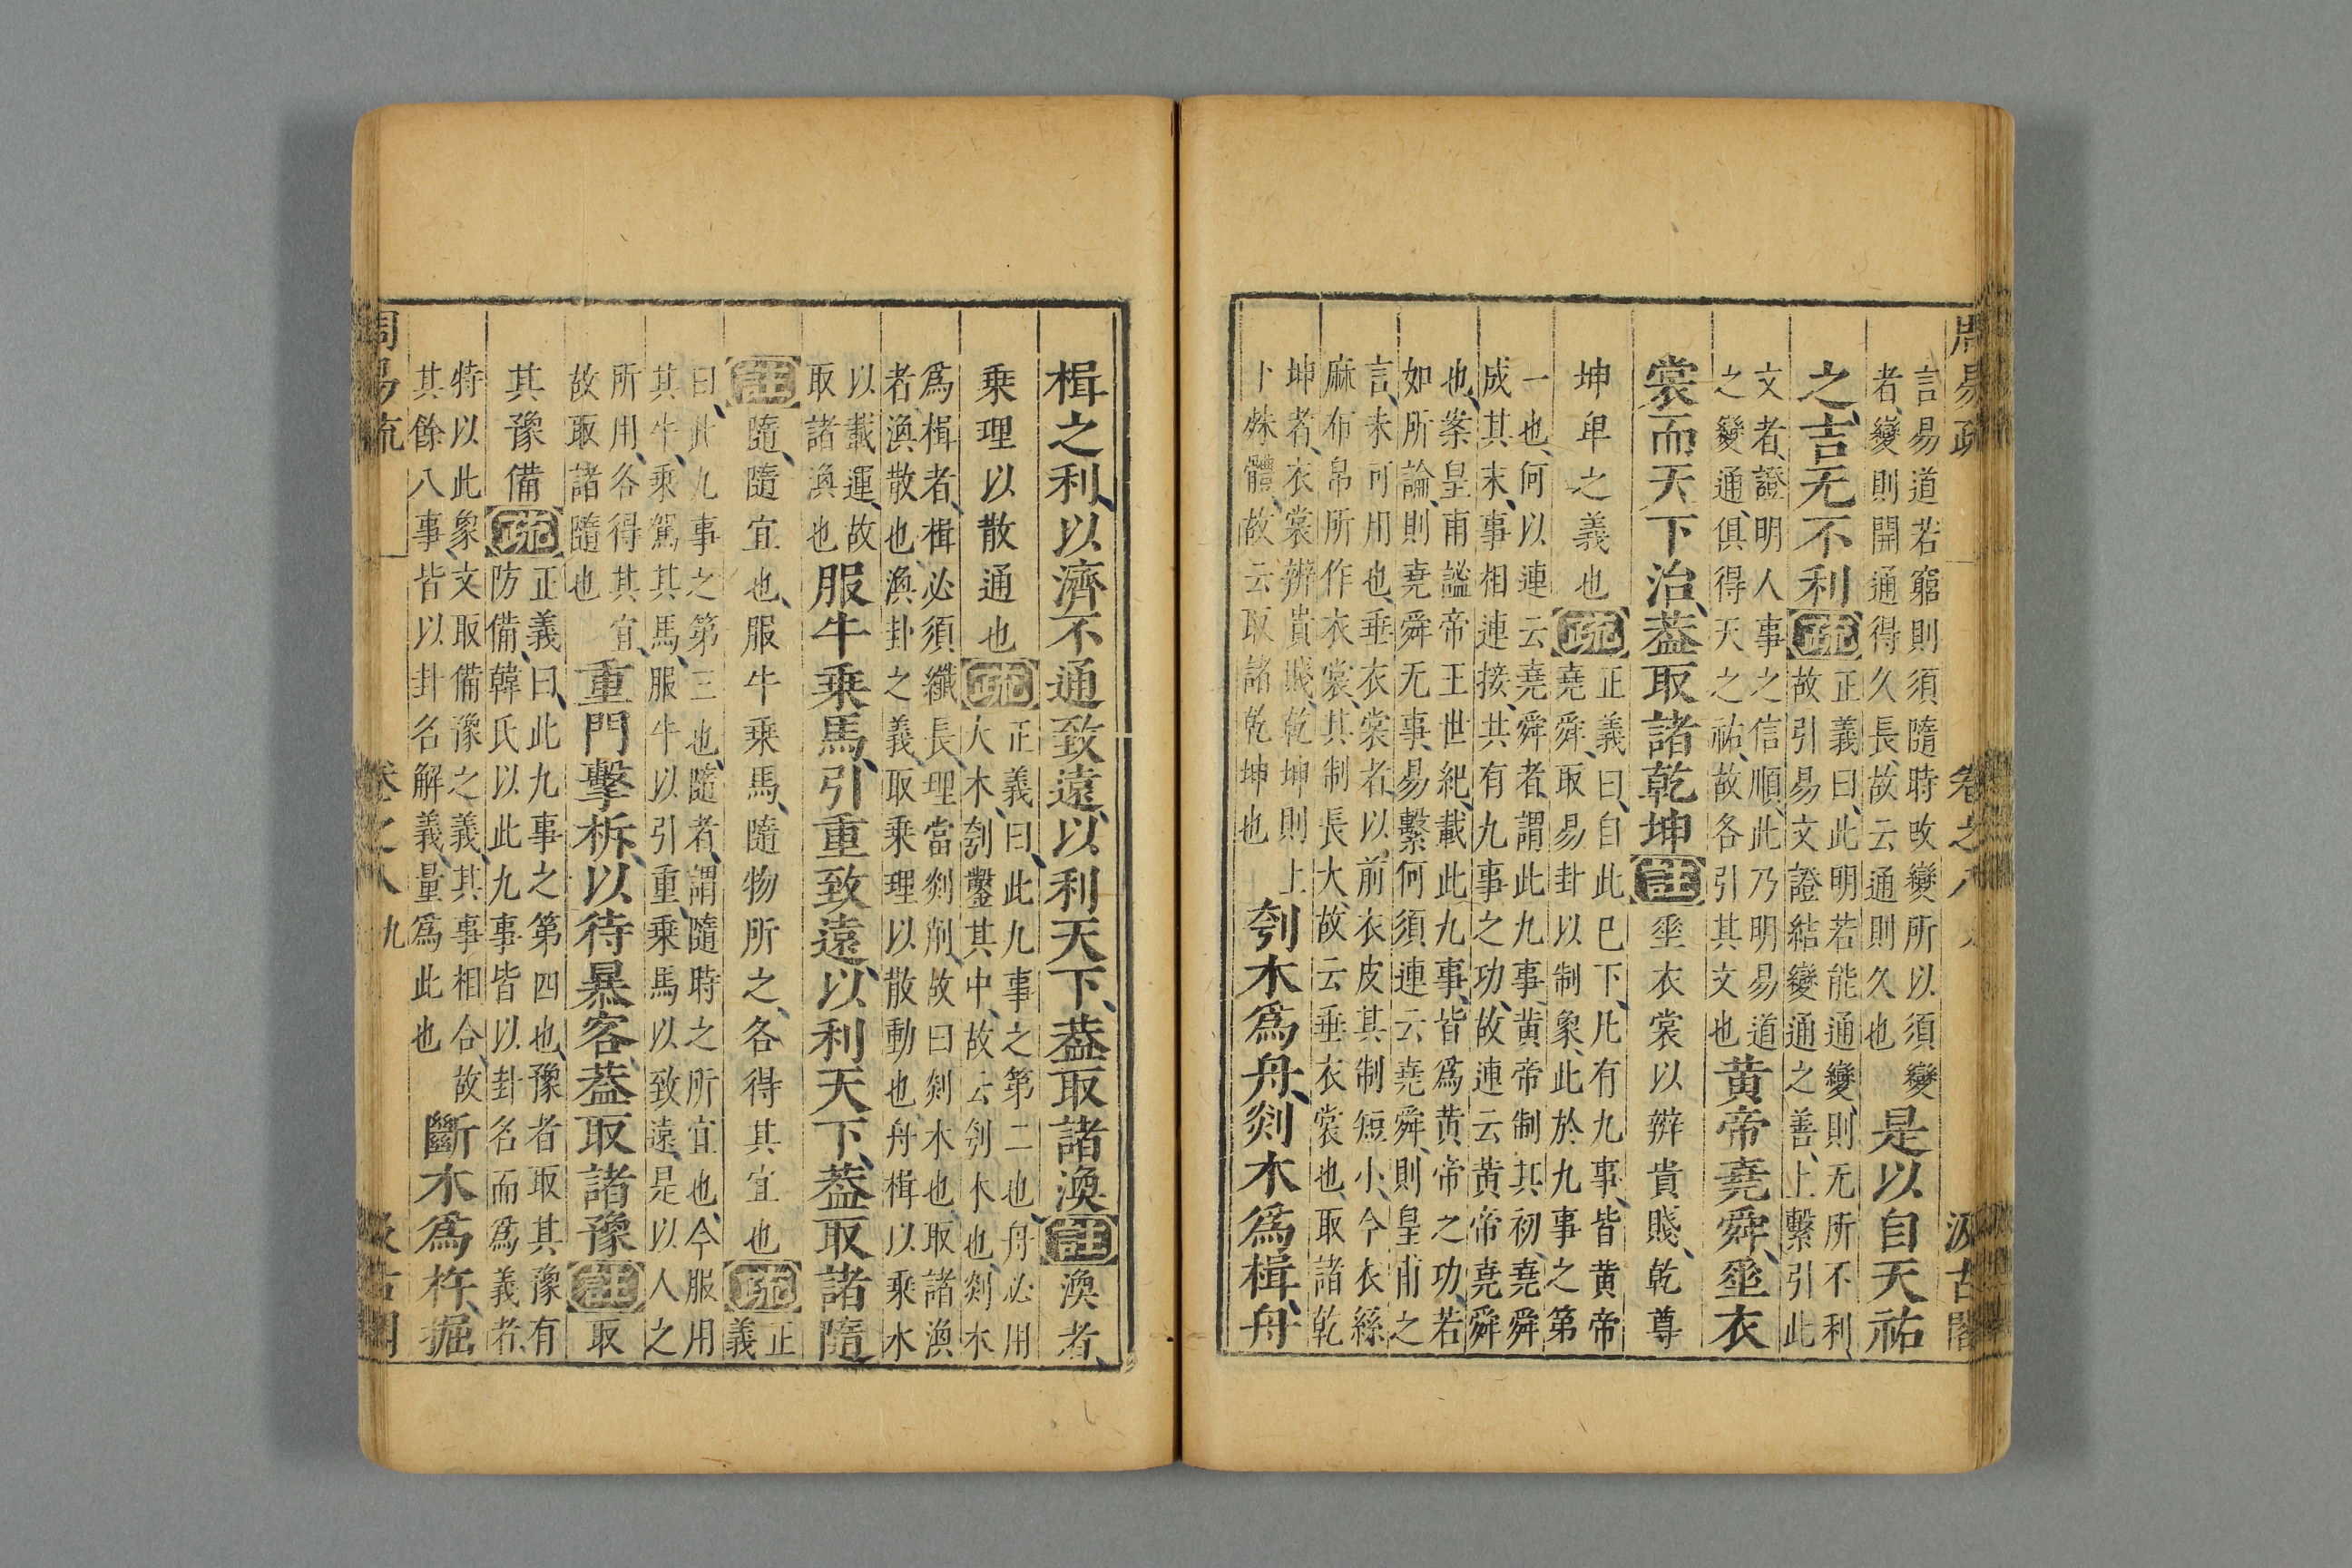 周易疏 卷之八 汲古閣
言易道若窮則須隨時改變所以須變
者、變則開通得久長、故云通則久也
是以自天祐
之、吉无不利疏
正義曰、此明若能通變、則无所不利、
故引易文證結變通之善、上繫引此
文者、證明人事之信順、此乃明易道
之變通、俱得天之祐、故各引其文也
黄帝堯舜、垂衣
裳而天下治、蓋取諸乾坤註垂衣裳以辨貴賤、乾尊
坤卑之義也疏
正義曰、自此已下、凡有九事、皆黄帝
堯舜、取易卦以制象、此於九事之第
一也、何以連云堯舜者、謂此九事、黄帝制其初、堯舜
成其末、事相連接、共有九事之功、故連云黄帝堯舜
也、案皇甫謐帝王世紀、載此九事、皆爲黄帝之功、若
如所論、則堯舜无事、易繫何須連云堯舜、則皇甫之
言、未可用也、垂衣裳者、以前衣皮、其制短小、今衣絲
麻布帛所作衣裳、其制長大、故云垂衣裳也、取諸乾
坤者、衣裳辨貴賤、乾坤則上
卜殊體、故云取諸乾坤也
刳木爲舟、剡木爲楫、舟
楫之利、以濟不通、致遠、以利天下、蓋取諸渙註渙者、
乗理以散通也疏
正義曰、此九事之第二也、舟必用
大木、刳鑿其中、故云刳木也、剡木
爲楫者、楫必須纖長、理當剡削、故曰剡木也、取諸渙
者、渙散也、渙卦之義、取乗理以散動也、舟楫以乗水
以載運、故
取諸渙也
服牛乗馬、引重致遠、以利天下、蓋取諸隨、
註隨、隨宜也、服牛乗馬、隨物所之、各得其宜也疏
正
義
曰、此九事之第三也、隨者、謂隨時之所宜也、今服用
其牛、乗駕其馬、服牛以引重、乗馬以致遠、是以人之
所用、各得其宜、
故取諸隨也
重門擊柝、以待暴客、蓋取諸豫註取
其豫備疏
正義曰、此九事之第四也、豫者取其豫有
防備、韓氏以此九事皆以卦名而爲義者、
特以此象、文取備豫之義、其事相合、故
其餘八事、皆以卦名解義、量爲此也
斷木爲杵、掘
周易疏 卷之八 九 汲古閣